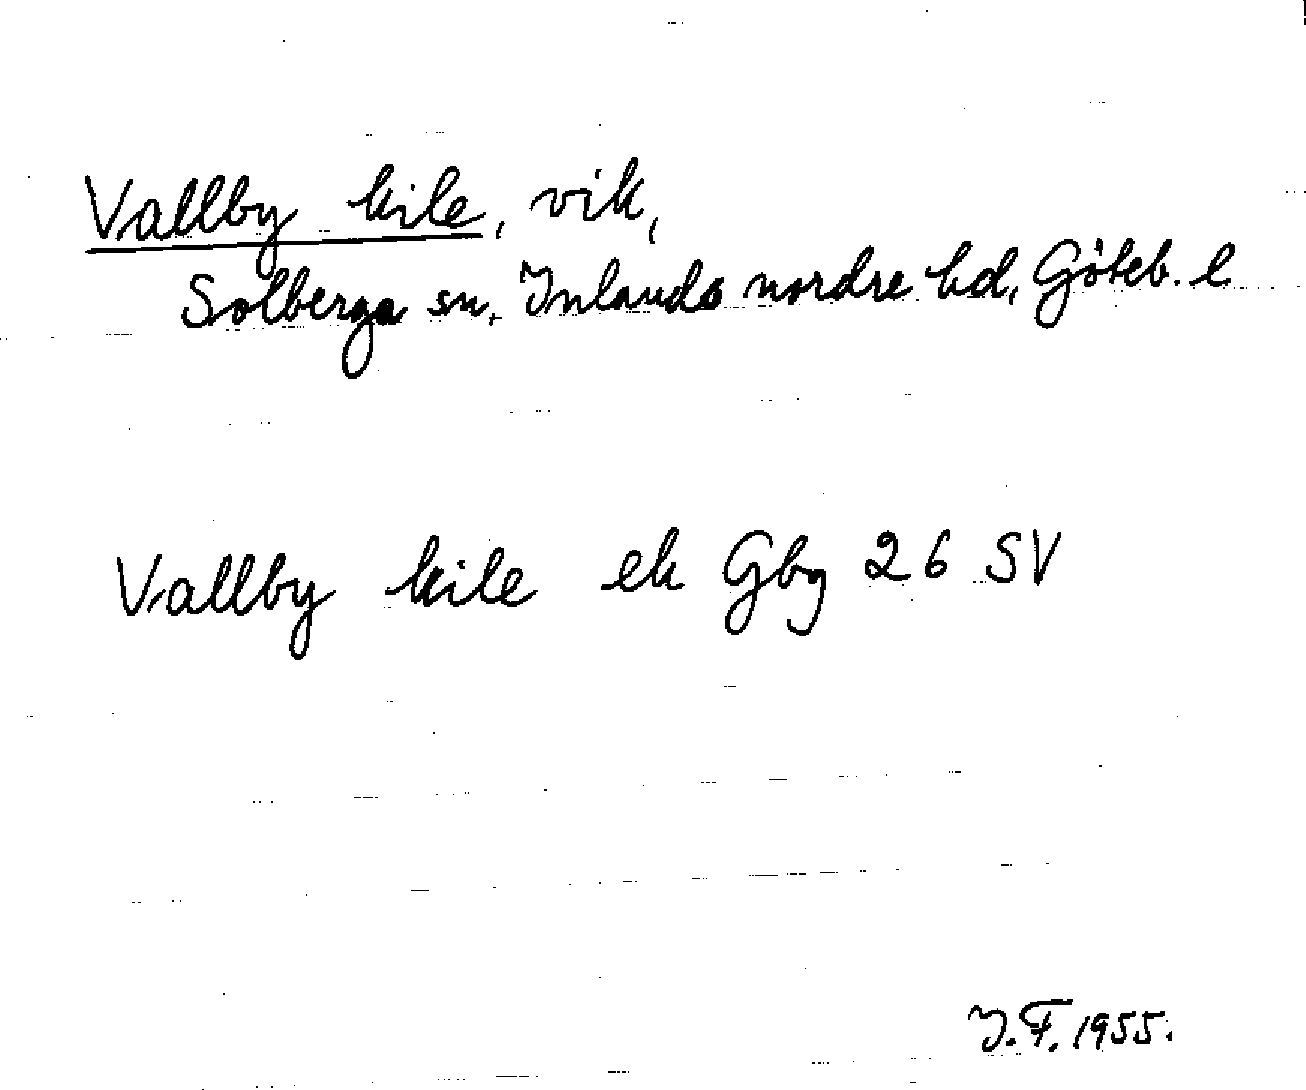 Vallby kile, vik,
Solberga sn, Inlands nordre hd, Göteb. l
Vallby kile ek Gbg 26 SV
I.F. 1955.